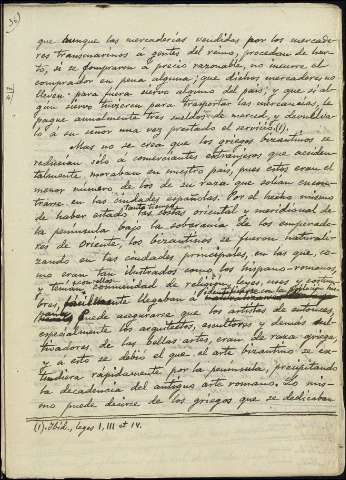 36)
que aunque las mercaderías vendidas por los mercade-
res transmarinos á gentes del reino, procedan de hur-
to, si se compraren á precio razonable, no incurre el
comprador en pena alguna; que dichos mercaderes no
lleven para fuera siervo alguno del país; y que si al-
gún siervo tuvieren para trasportar las mercancías, le
pague anualmente tres sueldos de merced, y devuélva-
lo á su señor una vez prestado el servicio (1).
Mas no se crea que los griegos bizantinos se
reducían sólo á comerciantes extranjeros que acciden-
talmente moraban en nuestro país, pues éstos eran el
menor número de los de su raza que solían encon-
trarse en las ciudades españolas. Por el hecho mismo
de haber estado tanto tiempo las costas oriental y meridional de
la península bajo la soberanía de los emperado-
res de Oriente, los bizantinos se fueron naturali-
zando en las ciudades principales, en las que, co-
mo eran tan ilustrados como los hispano-romanos,
y tenían con ellos comunidad de religión, leyes, usos y costum-
bres, llegaban á
Puede asegurarse que los artistas de entonces,
especialmente los arquitectos, escultores y demás cul-
tivadores de las bellas artes, eran de raza griega,
y á esto se debió el que el arte bizantino se ex-
tendiera rápidamente por la península, precipitando
la decadencia del antiguo arte romano. Lo mis-
mo puede decirse de los griegos que se dedicaban
(1). Ibid., leges I, III et IV.